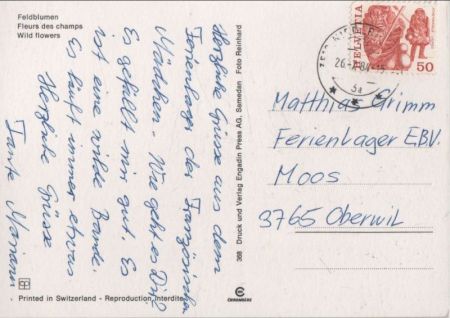 Feldblumen
Fleurs des champs
Wild flowers
Herzliche Grüsse aus dem
Ferienlager der Französischen
Mädchen. Wie geht es Dir?
Es gefällt mir gut. Es
ist eine wilde Bande.
Es läuft immer etwas
Herzliche Grüsse
Tante Mariann
368 Druck und Verlag Engadin Press AG, Samedan Foto Reinhard
HELVETIA
50
Matthias Grimm
Ferienlager EBV.
Moos
3765 Oberwil
Printed in Switzerland - Reproduction interdite